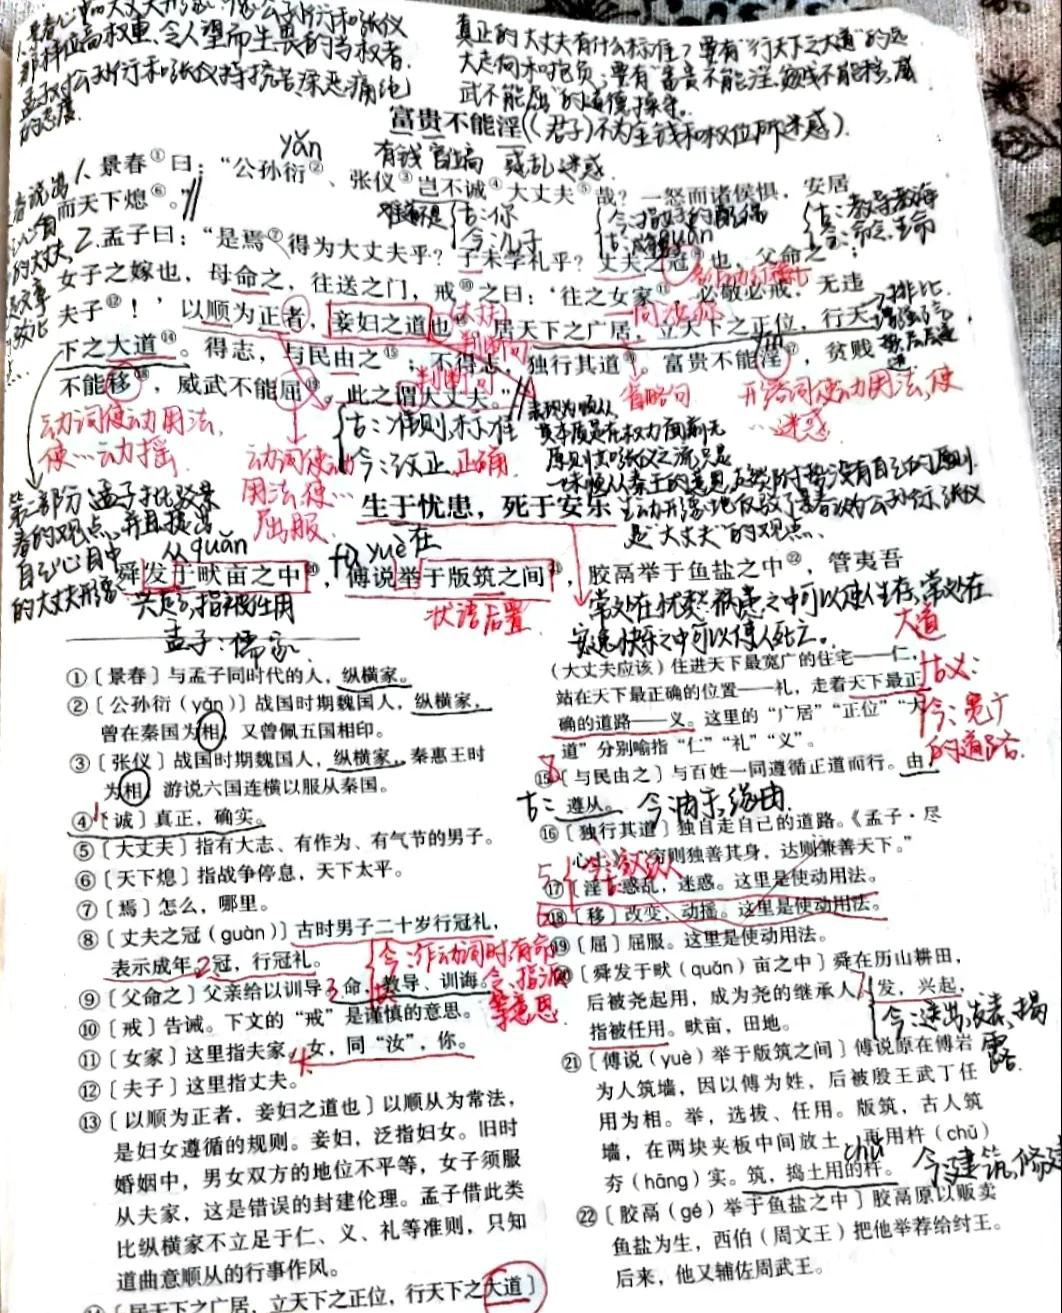 那种位高权重、令人望而生畏的当权者.
孟子对公孙衍和张仪持抗苦深恶痛绝
的态度.
真正的大丈夫有什么标准?要有"行天下之大道"的远
大志向和抱负,要有"富贵不能淫,贫贱不能移,威
武不能屈"的道德操守.
富贵不能淫
(君子)不为金钱和权位所迷惑).
有钱 官位高 或乱迷惑
yǎn
1. 景春①曰:“公孙衍②、张仪③岂不诚④大丈夫⑤哉?一怒而诸侯惧,安居
而天下熄⑥。”
难道不是
古:你
今:儿子
guàn
古:教导教诲
2. 孟子曰:“是焉⑦得为大丈夫乎?子未学礼乎?丈夫之冠⑧也,父命之⑨;
女子之嫁也,母命之,往送之门,戒⑩之曰:‘往之女家⑪,必敬必戒,无违
夫子⑫!’以顺为正者,妾妇之道也⑬。居天下之广居,立天下之正位,行天
排比
判断句
下之大道⑭。得志,与民由之⑮;不得志,独行其道⑯。富贵不能淫⑰,贫贱
yín
不能移⑱,威武不能屈⑲,此之谓大丈夫。”
判断句
省略句
形容词使动用法,使
…迷惑
动词使动用法,
使…动摇
动词使动
用法,使…
屈服.
古:准则,标准
今:改正.正确.
表现为顺从,
其本质是在权力面前无
原则,
第二部分 孟子批驳景
春的观点,并且提出
自己心目中
的大丈夫形象
生于忧患,死于安乐
是"大丈夫"的观点.
从 quǎn
fù yuè 在
舜发于畎亩之中⑳,傅说举于版筑之间㉑,胶鬲举于鱼盐之中㉒,管夷吾
兴起,指被任用
状语后置
常处在忧愁祸患之中可以使人生存,常处在
安逸快乐之中可以使人死亡.
孟子:儒家.
①〔景春〕与孟子同时代的人,纵横家。
②〔公孙衍(yǎn)〕战国时期魏国人,纵横家,
曾在秦国为相,又曾佩五国相印。
③〔张仪〕战国时期魏国人,纵横家,秦惠王时
为相,游说六国连横以服从秦国。
④〔诚〕真正,确实。
⑤〔大丈夫〕指有大志、有作为、有气节的男子。
⑥〔天下熄〕指战争停息,天下太平。
⑦〔焉〕怎么,哪里。
⑧〔丈夫之冠(guàn)〕古时男子二十岁行冠礼,
表示成年。冠,行冠礼。
⑨〔父命之〕父亲给以训导。命,教导、训诲。
⑩〔戒〕告诫。下文的“戒”是谨慎的意思。
⑪〔女家〕这里指夫家。女,同“汝”,你。
⑫〔夫子〕这里指丈夫。
⑬〔以顺为正者,妾妇之道也〕以顺从为常法,
是妇女遵循的规则。妾妇,泛指妇女。旧时
婚姻中,男女双方的地位不平等,女子须服
从夫家,这是错误的封建伦理。孟子借此类
比纵横家不立足于仁、义、礼等准则,只知
道曲意顺从的行事作风。
⑭〔居天下之广居,立天下之正位,行天下之大道〕
今:作动词时有命
令、指派
等意思
大道
(大丈夫应该)住进天下最宽广的住宅——仁,
站在天下最正确的位置——礼,走着天下最正
确的道路——义。这里的“广居”“正位”“大
道”分别喻指“仁”“礼”“义”。
古:义
今:宽广
的道路.
⑮〔与民由之〕与百姓一同遵循正道而行。由,
古: 遵从。 今:由于,缘由.
⑯〔独行其道〕独自走自己的道路。《孟子·尽
心上》:“穷则独善其身,达则兼善天下。”
⑰〔淫〕惑乱,迷惑。这里是使动用法。
⑱〔移〕改变,动摇。这里是使动用法。
⑲〔屈〕屈服。这里是使动用法。
⑳〔舜发于畎(quǎn)亩之中〕舜在历山耕田,
后被尧起用,成为尧的继承人。发,兴起,
指被任用。畎亩,田地。
今:送出,发表,揭
露.
㉑〔傅说(yuè)举于版筑之间〕傅说原在傅岩
为人筑墙,因以傅为姓,后被殷王武丁任
用为相。举,选拔、任用。版筑,古人筑
墙,在两块夹板中间放土,再用杵(chǔ)
夯(hāng)实。筑,捣土用的杵。
chǔ
今:建筑,修建
㉒〔胶鬲(gé)举于鱼盐之中〕胶鬲原以贩卖
鱼盐为生,西伯(周文王)把他举荐给纣王。
后来,他又辅佐周武王。